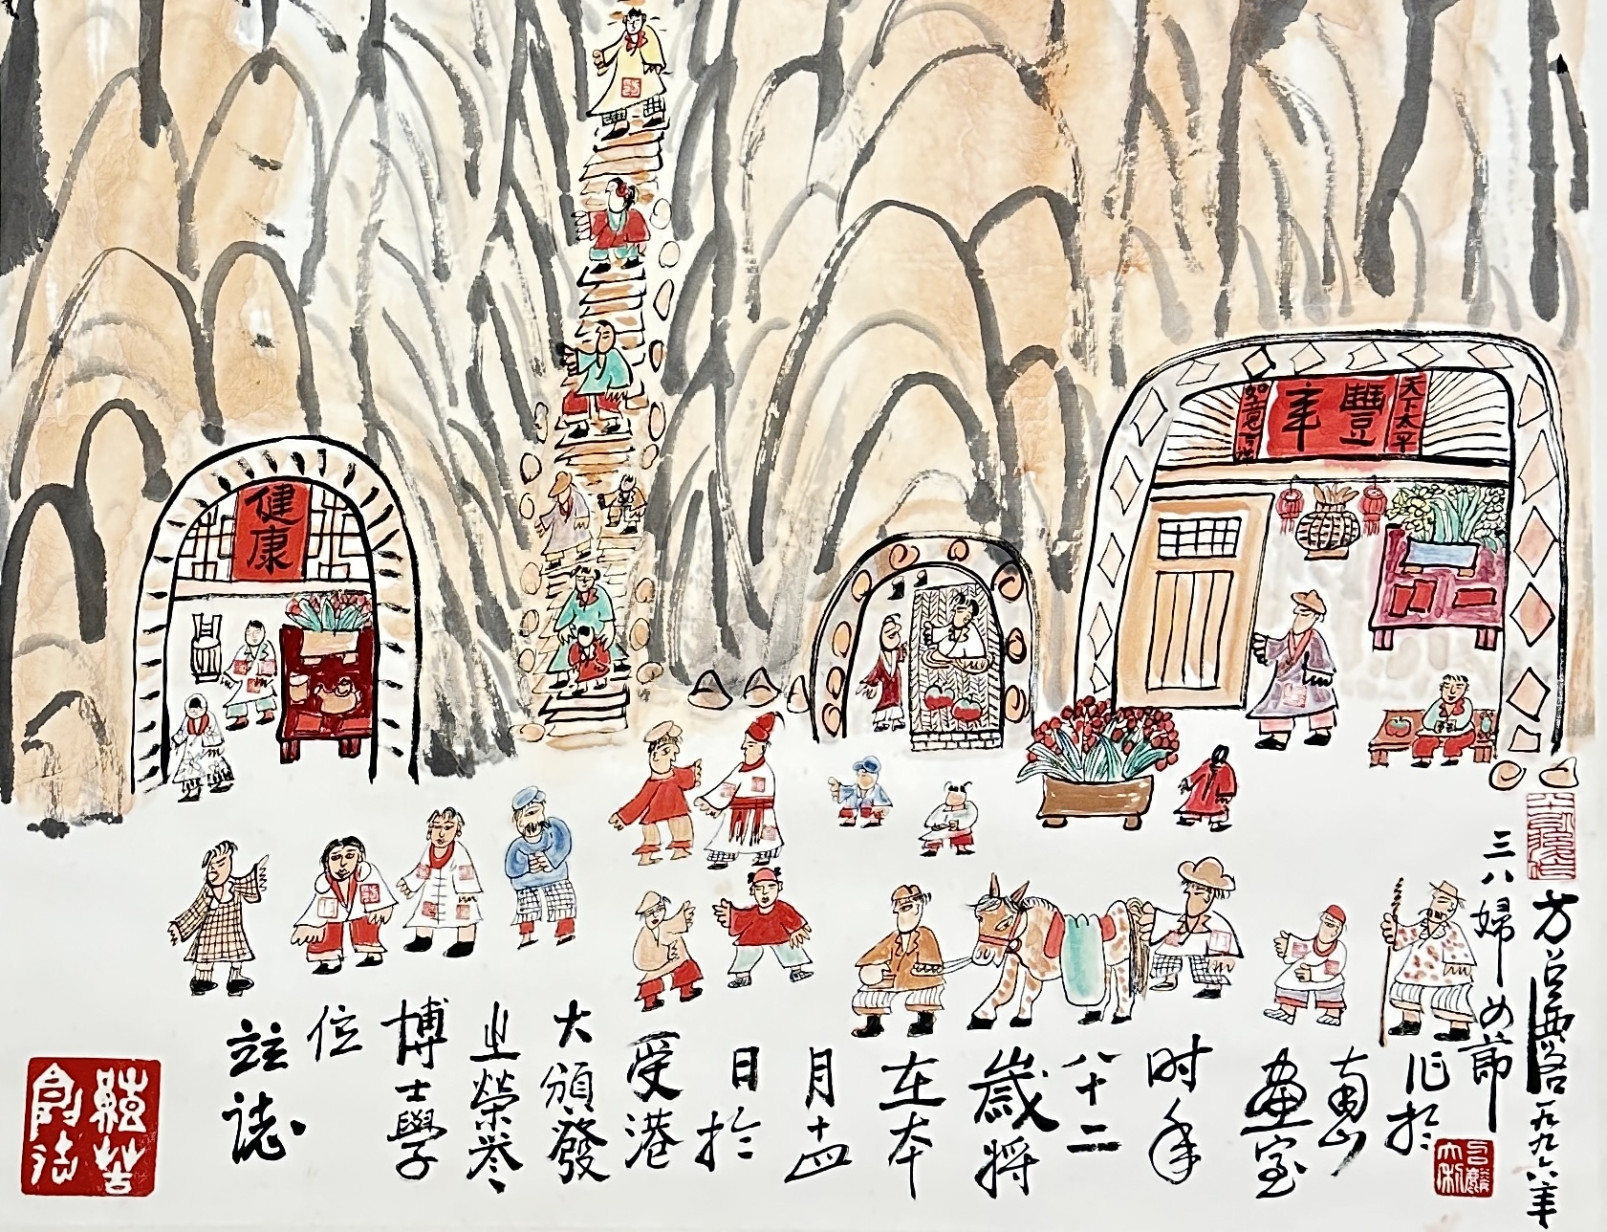 健康
天下太平
豐年
方召麐一九九六年
三八婦女節
作於
南山
畫室
时年
八十二
歲将
在本
月十四
日於
受港
大頒發
之榮誉
博士學
位
竝誌